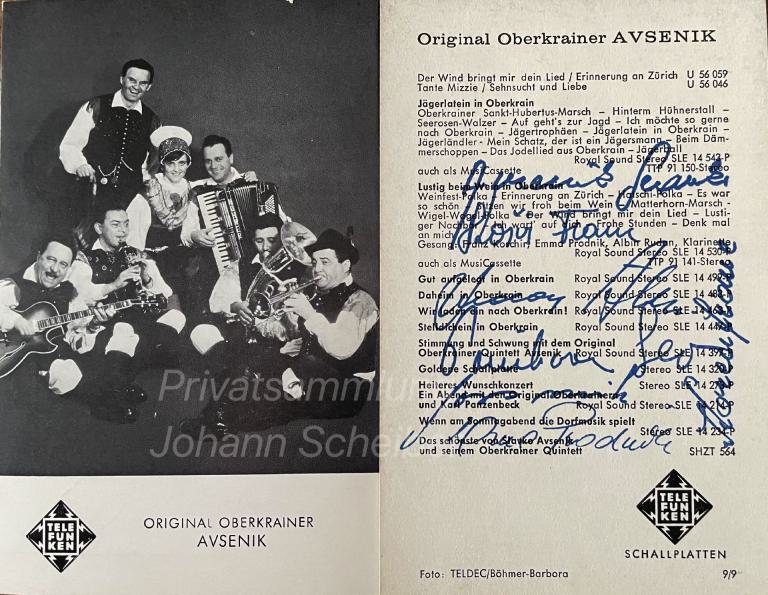 Privatsammlung
Johann Scheid
TELE
FUN
KEN
ORIGINAL OBERKRAINER
AVSENIK
Original Oberkrainer AVSENIK
Der Wind bringt mir dein Lied / Erinnerung an Zürich U 56 059
Tante Mizzie / Sehnsucht und Liebe U 56 046
Jägerlatein in Oberkrain
Oberkrainer Sankt-Hubertus-Marsch – Hinterm Hühnerstall –
Seerosen-Walzer – Auf geht's zur Jagd – Ich möchte so gerne
nach Oberkrain – Jägertrophäen – Jägerlatein in Oberkrain –
Jägerländler - Mein Schatz, der ist ein Jägersmann – Beim Däm-
merschoppen – Das Jodellied aus Oberkrain – Jägerball
Royal Sound Stereo SLE 14 542-P
auch als MusiCassette TTP 91 150-Stereo
Lustig beim Wein in Oberkrain
Weinfest-Polka / Erinnerung an Zürich – Polka – Es war
so schön – Sitzen wir froh beim Wein – Matterhorn-Marsch -
Wigel-Wogel-Polka – Der Wind bringt mir dein Lied – Lusti-
ger Nachbar – Ich wart' auf dich – an frohe Stunden – Denk mal
an mich
Gesang: Franz Koschir, Emma Prodnik, Albin Rudan, Klarinette
Royal Sound Stereo SLE 14 530-P
auch als MusiCassette TTP 91 141-Stereo
Gut aufgelegt in Oberkrain Royal Sound Stereo SLE 14 499-P
Daheim in Oberkrain Royal Sound Stereo SLE 14 488-P
Wir laden ein nach Oberkrain! Royal Sound Stereo SLE 14
Stelldichein in Oberkrain Royal Sound Stereo SLE 14 449-P
Stimmung und Schwung mit dem Original
Oberkrainer Quintett Avsenik Royal Sound Stereo SLE 14 399-P
Goldene Schallplatte Stereo SLE 14 320-P
Heiteres Wunschkonzert Stereo SLE 14 273-P
Ein Abend mit den Original Oberkrainern
und Karl Panzenbeck Royal Sound Stereo SLE 14 214-P
Wenn am Sonntagabend die Dorfmusik spielt
Stereo SLE 14 234-P
Das schönste von Slavko Avsenik
und seinem Oberkrainer Quintett SHZT 564
TELE
FUN
KEN
SCHALLPLATTEN
Foto: TELDEC/Böhmer-Barbora 9/9